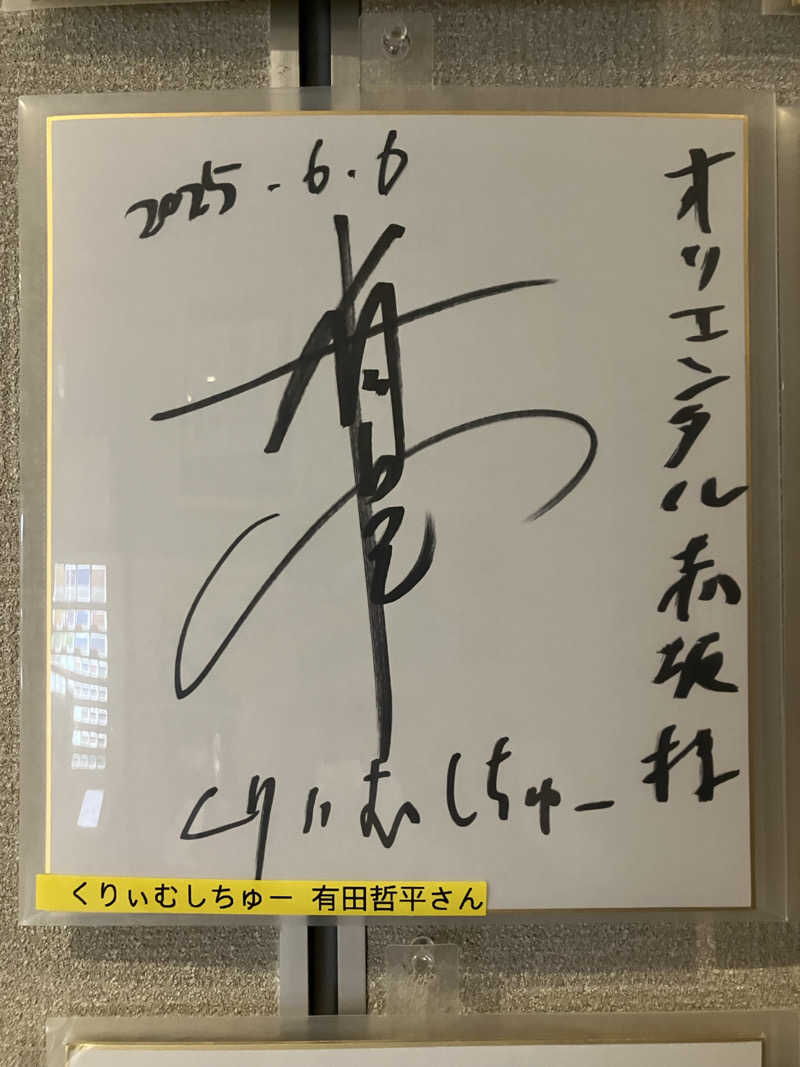 オリエンタル赤坂様
2025.6.6
くりぃむしちゅー
くりぃむしちゅー 有田哲平さん